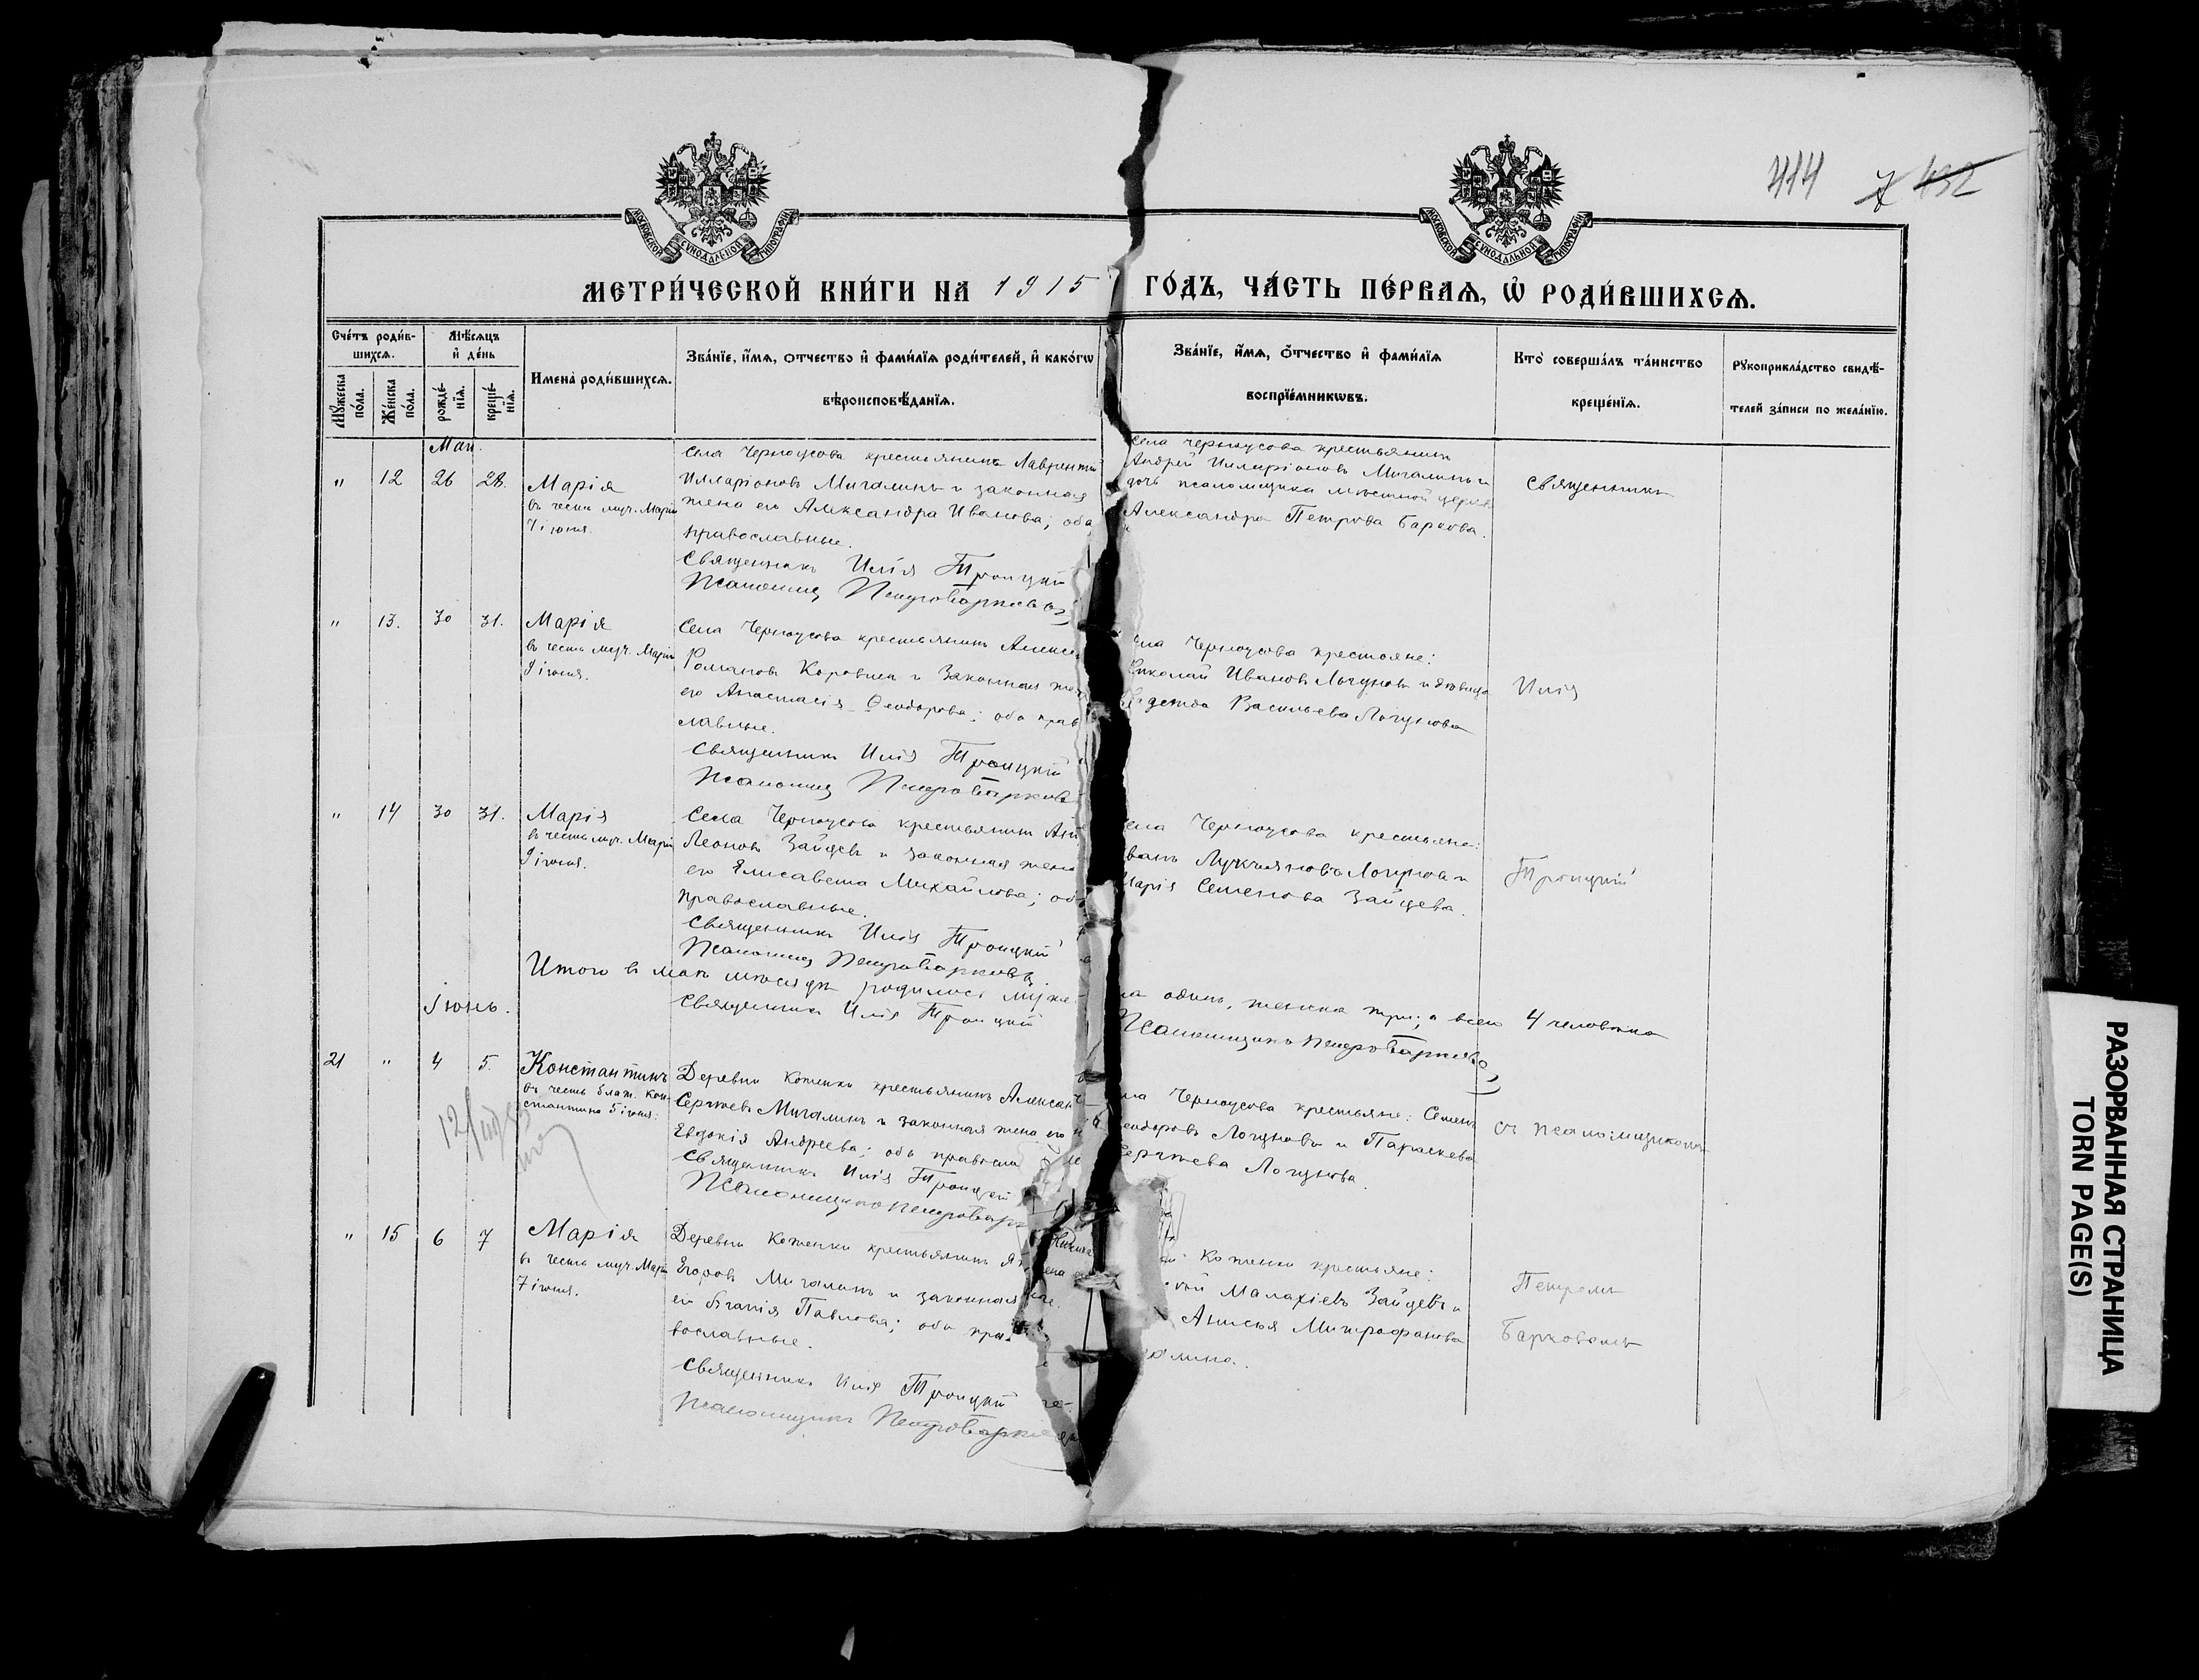 414 7 432
МОСКОВСКОЙ СѴНОДАЛЬНОЙ ТИПОГРАФІИ
МОСКОВСКОЙ СѴНОДАЛЬНОЙ ТИПОГРАФІИ
МЕТРИ́ЧЕСКОЙ КНИ́ГИ НА 1915 ГО́ДЪ, ЧА́СТЬ ПЕ́РВАѦ, Ѡ҆ РОДИ́ВШИХСѦ.
Сче́тъ роди́в-
шихсѧ.
Мꙋ́жеска по́ла.
Же́нска по́ла.
Мѣ́сѧцъ
и҆ де́нь
рожде́-
нїѧ.
креще́-
нїѧ.
Имена̀ роди́вшихсѧ.
Зва́нїе, и҆́мѧ, ѻ҆́тчество и҆ фами́лїѧ роди́телей, и҆ како́гѡ
вѣроисповѣ́данїѧ.
Зва́нїе, и҆́мѧ, ѻ҆́тчество и҆ фами́лїѧ
воспрїе́мникѡвъ.
Кто̀ соверша́лъ та́инство
креще́нїѧ.
Рꙋкоприкла́дство свидѣ́-
телей за́писи по жела́нїю.
Май.
" 12 26 28. Марія
въ честь муч. Маріи
7 іюня.
Села Черноусова крестьянинъ Лаврентій
Илларіоновъ Мигалинъ и законная
жена его Александра Иванова; оба
православные.
Священникъ Илія Троицкій
Псаломщ Петръ Барковъ
Села Черноусова крестьянинъ
Андрей Илларіоновъ Мигалинъ и
дочь псаломщика мѣстной церкви
Александра Петрова Баркова.
Священникъ
" 13. 30 31. Марія
въ честь муч. Маріи
9 іюня.
Села Черноусова крестьянинъ Алексе
Романовъ Коровин и законная же
его Анастасія Ѳеодорова; оба прав
лавные.
Священникъ Илія Троицкій
Псаломщ Петръ Барковъ
ла Черноусова крестьяне:
Николай Ивановъ Логуновъ и дѣвица
Васильева Логунова
Илія
" 14 30 31. Марія
въ честь муч. Маріи
9 іюня.
Села Черноусова крестьянинъ
Леоновъ Зайцевъ и законная жена
его Елисавета Михайлова; об
православные.
Священникъ Илія Троицкій
Псаломщ Петръ Барковъ
ела Черноусова крестьяне:
ванъ Лукьяновъ Логуновъ и
Марія Семенова Зайцева.
Троицкій
Итого в маѣ мѣсяцѣ родилось муже- ка одинъ, женска три; а всего 4 человѣка
Священникъ Илія Троицкій
Псаломщикъ Петръ Барковъ
Іюнь.
21 " 4 5. Константинъ
въ честь благ. Кон-
стантина 5 іюня.
Деревни Коженки крестьянинъ Алексан
Сергѣевъ Мигалинъ и законная жена его
Евдокія Андреева; оба правосла
Священникъ Илія Троицкій
Псаломщикъ Петръ Барк
ла Черноусова крестьяне: Семенъ
еодоровъ Логуновъ и Параскева
Сергѣева Логунова.
съ псаломщикомъ
" 15 6 7 Марія
въ честь муч. Маріи
7 іюня.
Деревни Коженки крестьянинъ
Егоровъ Мигалинъ и законная
его Павлова; оба пра
вославные.
Священникъ Илія Троицкій
Псаломщикъ Петръ Барк
Коженки крестьяне:
Малахіевъ Зайцевъ и
Анисья Митрофанова
галина.
Петромъ
Барковымъ
РАЗОРВАННАЯ СТРАНИЦА
TORN PAGE(S)